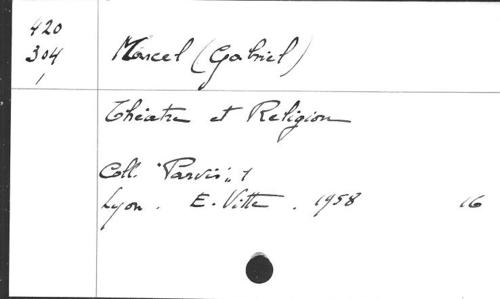 420
304
1
Marcel (Gabriel)
Théatre et Religion
Coll. "Parvis", 1
Lyon. E. Vitte. 1958 16